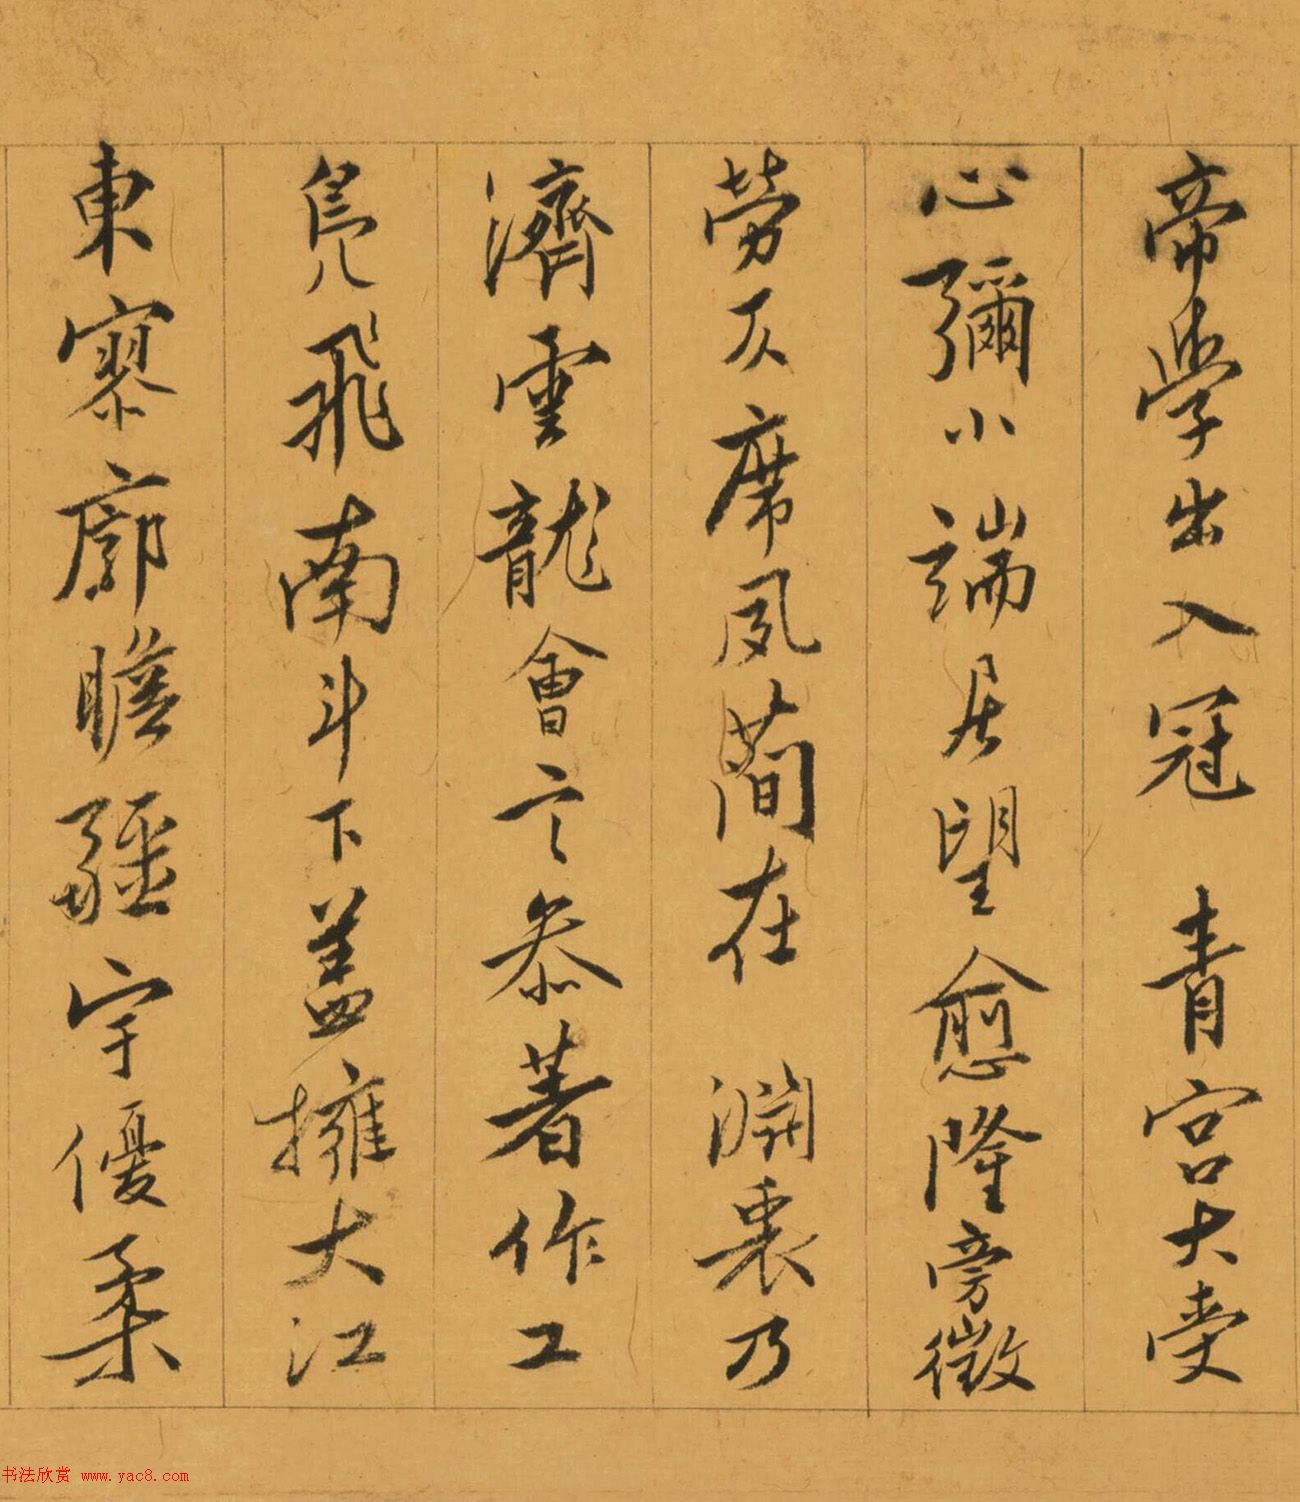 帝學出入冠 青宮大受
心彌小端居望愈隆旁徵
勞仄席夙簡在 淵衷乃
濟雲龍會言參著作工
鳧飛南斗下蓋擁大江
東寥廓瞻疆宇優柔
书法欣赏 www.yac8.com